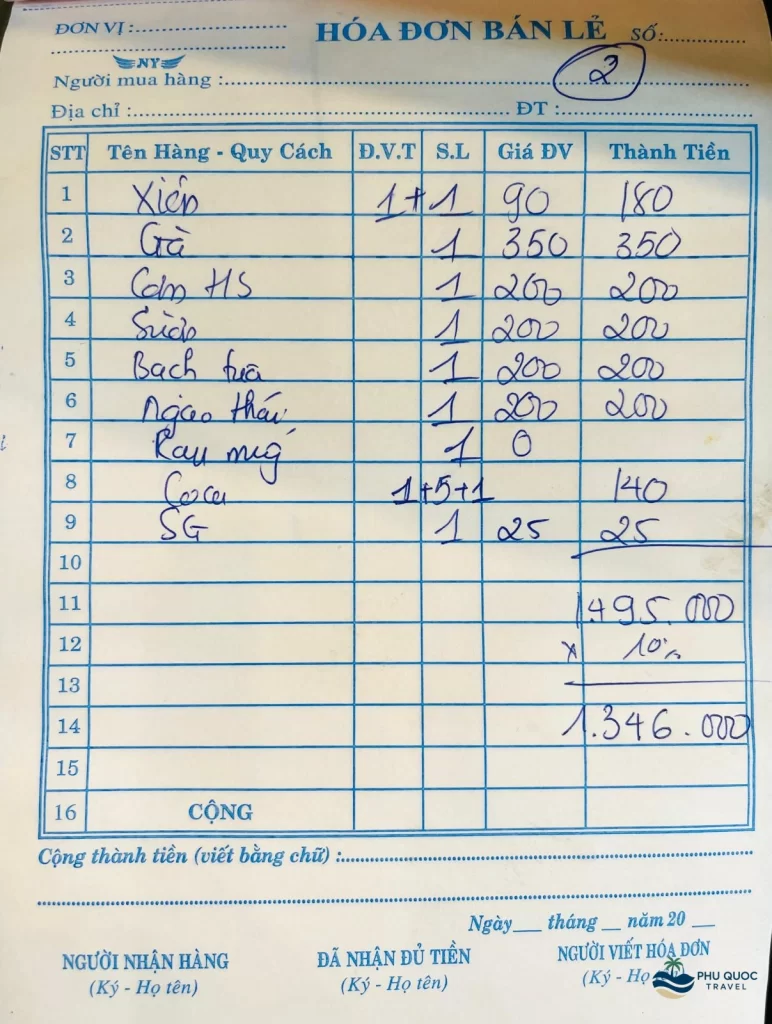 ĐƠN VỊ :
HÓA ĐƠN BÁN LẺ SỐ:
NY
Người mua hàng : 2
Địa chỉ : ĐT :
STT Tên Hàng - Quy Cách Đ.V.T S.L Giá ĐV Thành Tiền
1 Xiên 1+1 90 180
2 Gà 1 350 350
3 Cơm HS 1 200 200
4 Sườn 1 200 200
5 Bạch tuộc 1 200 200
6 Ngao thái 1 200 200
7 Rau 1 0
8 Coca 1+5+1 140
9 SG 1 25 25
10
11 1.495.000
12 x 10%
13
14 1.346.000
15
16 CỘNG
Cộng thành tiền (viết bằng chữ) :
Ngày tháng năm 20
NGƯỜI NHẬN HÀNG ĐÃ NHẬN ĐỦ TIỀN NGƯỜI VIẾT HÓA ĐƠN
(Ký - Họ tên) (Ký - Họ tên) (Ký - Họ
PHU QUOC
TRAVEL